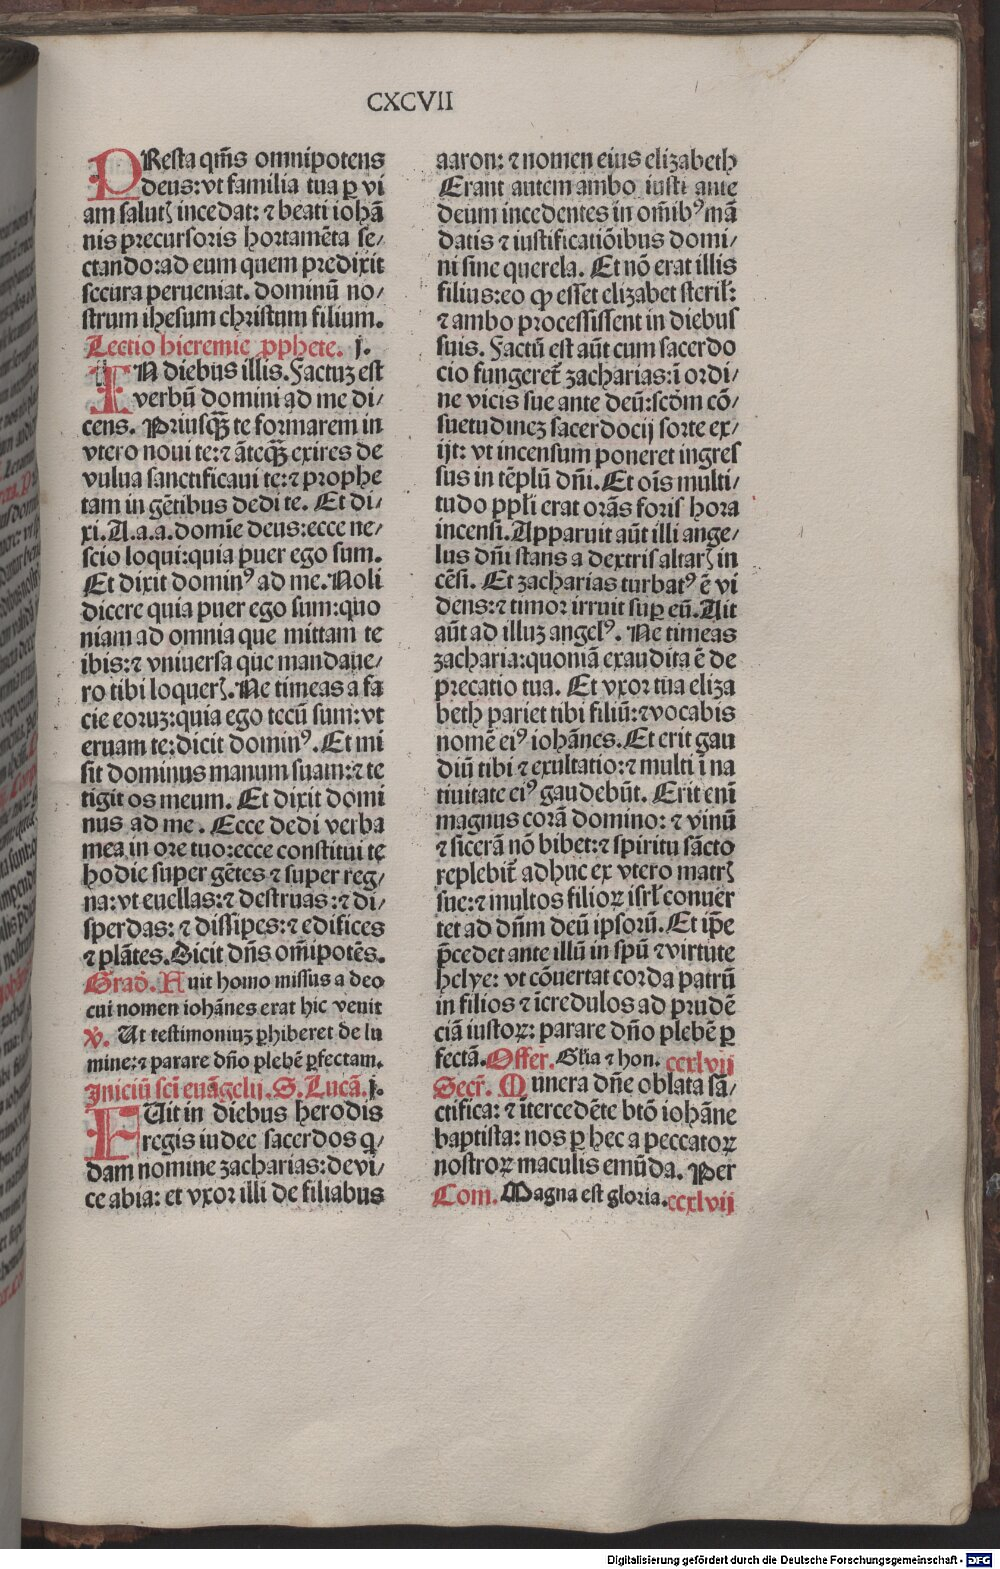 CXCVII
PResta qm̃s omnipotens
deus: vt familia tua ꝑ vi
am salutꝭ incedat: ⁊ beati iohã
nis precursoris hortamẽta se/
ctando: ad eum quem predixit
secura perueniat. dominũ no/
strum ihesum christum filium.
Lectio hieremie ꝓphete. j.
IN diebus illis. Factuꝫ est
verbũ domini ad me di/
cens. Priusꝙ̃ te formarem in
vtero noui te: ⁊ ãteꝙ̃ exires de
vulua sanctificaui te: ⁊ prophe
tam in gẽtibus dedi te. Et di/
xi. A.a.a. domĩe deus: ecce ne/
scio loqui: quia puer ego sum.
Et dixit dominꝰ ad me. Noli
dicere quia puer ego sum: quo
niam ad omnia que mittam te
ibis: ⁊ vniuersa que mandaue/
ro tibi loquerꝭ. Ne timeas a fa
cie eoruꝫ: quia ego tecũ sum: vt
eruam te: dicit dominꝰ. Et mi
sit dominus manum suam: ⁊ te
tigit os meum. Et dixit domi
nus ad me. Ecce dedi verba
mea in ore tuo: ecce constitui te
hodie super gẽtes ⁊ super reg/
na: vt euellas: ⁊ destruas: ⁊ di/
sperdas: ⁊ dissipes: ⁊ edifices
⁊ plãtes. Dicit dñs om̃ipotẽs.
Grad̃. Fuit homo missus a deo
cui nomen iohãnes erat hic venit
v̓. Ut testimoniuꝫ ꝑhiberet de lu
mine: ⁊ parare dño plebẽ ꝑfectam.
Iniciũ sci̅ euãgelij. S. Lucã. j.
FUit in diebus herodis
regis iudee sacerdos q̃/
dam nomine zacharias: de vi/
ce abia: et vxor illi de filiabus
aaron: ⁊ nomen eius elizabeth
Erant autem ambo iusti ante
deum incedentes in om̃ibꝰ mã
datis ⁊ iustificatiõibus domi/
ni sine querela. Et nõ erat illis
filius: eo ꝙ esset elizabet steril̃:
⁊ ambo processissent in diebus
suis. Factũ est aũt cum sacerdo
cio fungeret᷑ zacharias: ĩ ordi/
ne vicis sue ante deũ: scd̃m cõ/
suetudineꝫ sacerdocij sorte ex/
ijt: vt incensum poneret ingres
sus in tẽplũ dñi. Et oĩs multi/
tudo ppl̃i erat orãs foris hora
incensi. Apparuit aũt illi ange/
lus dñi stans a dextris altarꝭ in
cẽsi. Et zacharias turbatꝰ ẽ vi
dens: ⁊ timor irruit suꝑ eũ. Ait
aũt ad illuꝫ angelꝰ. Ne timeas
zacharia: quoniã exaudita ẽ de
precatio tua. Et vxor tua eliza
beth pariet tibi filiũ: ⁊ vocabis
nomẽ eiꝰ iohãnes. Et erit gau
diũ tibi ⁊ exultatio: ⁊ multi ĩ na
tiuitate eiꝰ gaudebũt. Erit enĩ
magnus corã domino: ⁊ vinũ
⁊ sicerã nõ bibet: ⁊ spiritu sãcto
replebit᷑ adhuc ex vtero matrꝭ
sue: ⁊ multos filioꝝ isrl̃ conuer
tet ad dñm deũ ipsorũ. Et ip̃e
p̃cedet ante illũ in spũ ⁊ virtute
helye: vt cõuertat corda patrũ
in filios ⁊ ĩcredulos ad prudẽ
ciã iustoꝝ: parare dño plebẽ ꝑ
fectã. Offer̃. Gl̃ia ⁊ hon. ccxlvij
Secr̃. Munera dñe oblata sã/
ctifica: ⁊ ĩtercedẽte btõ iohãne
baptista: nos ꝑ hec a peccatoꝝ
nostroꝝ maculis emũda. Per
Com. Magna est gloria. ccxlvij
Digitalisierung gefördert durch die Deutsche Forschungsgemeinschaft - DFG